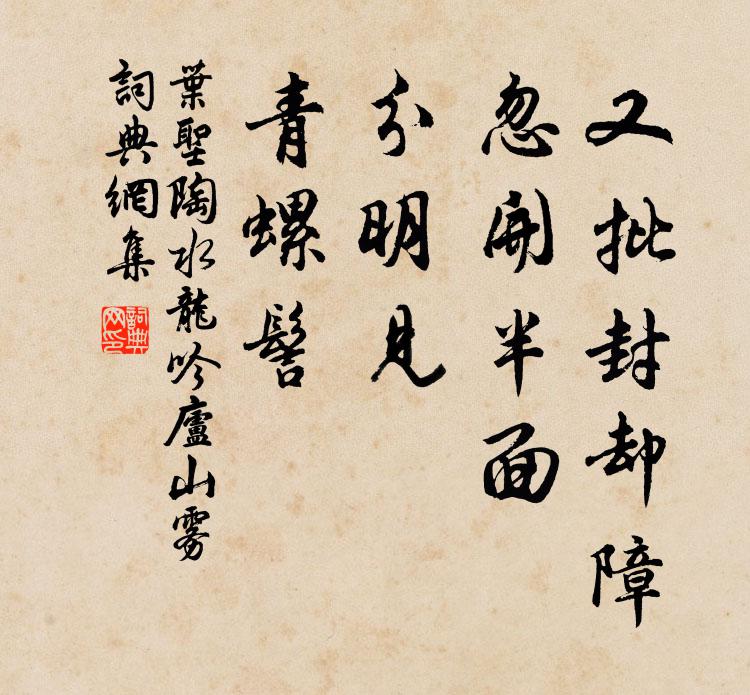 又批封却障
忽開半面
分明見
青螺髻
葉聖陶水龍吟廬山霧
詞典網集
詞典
网印